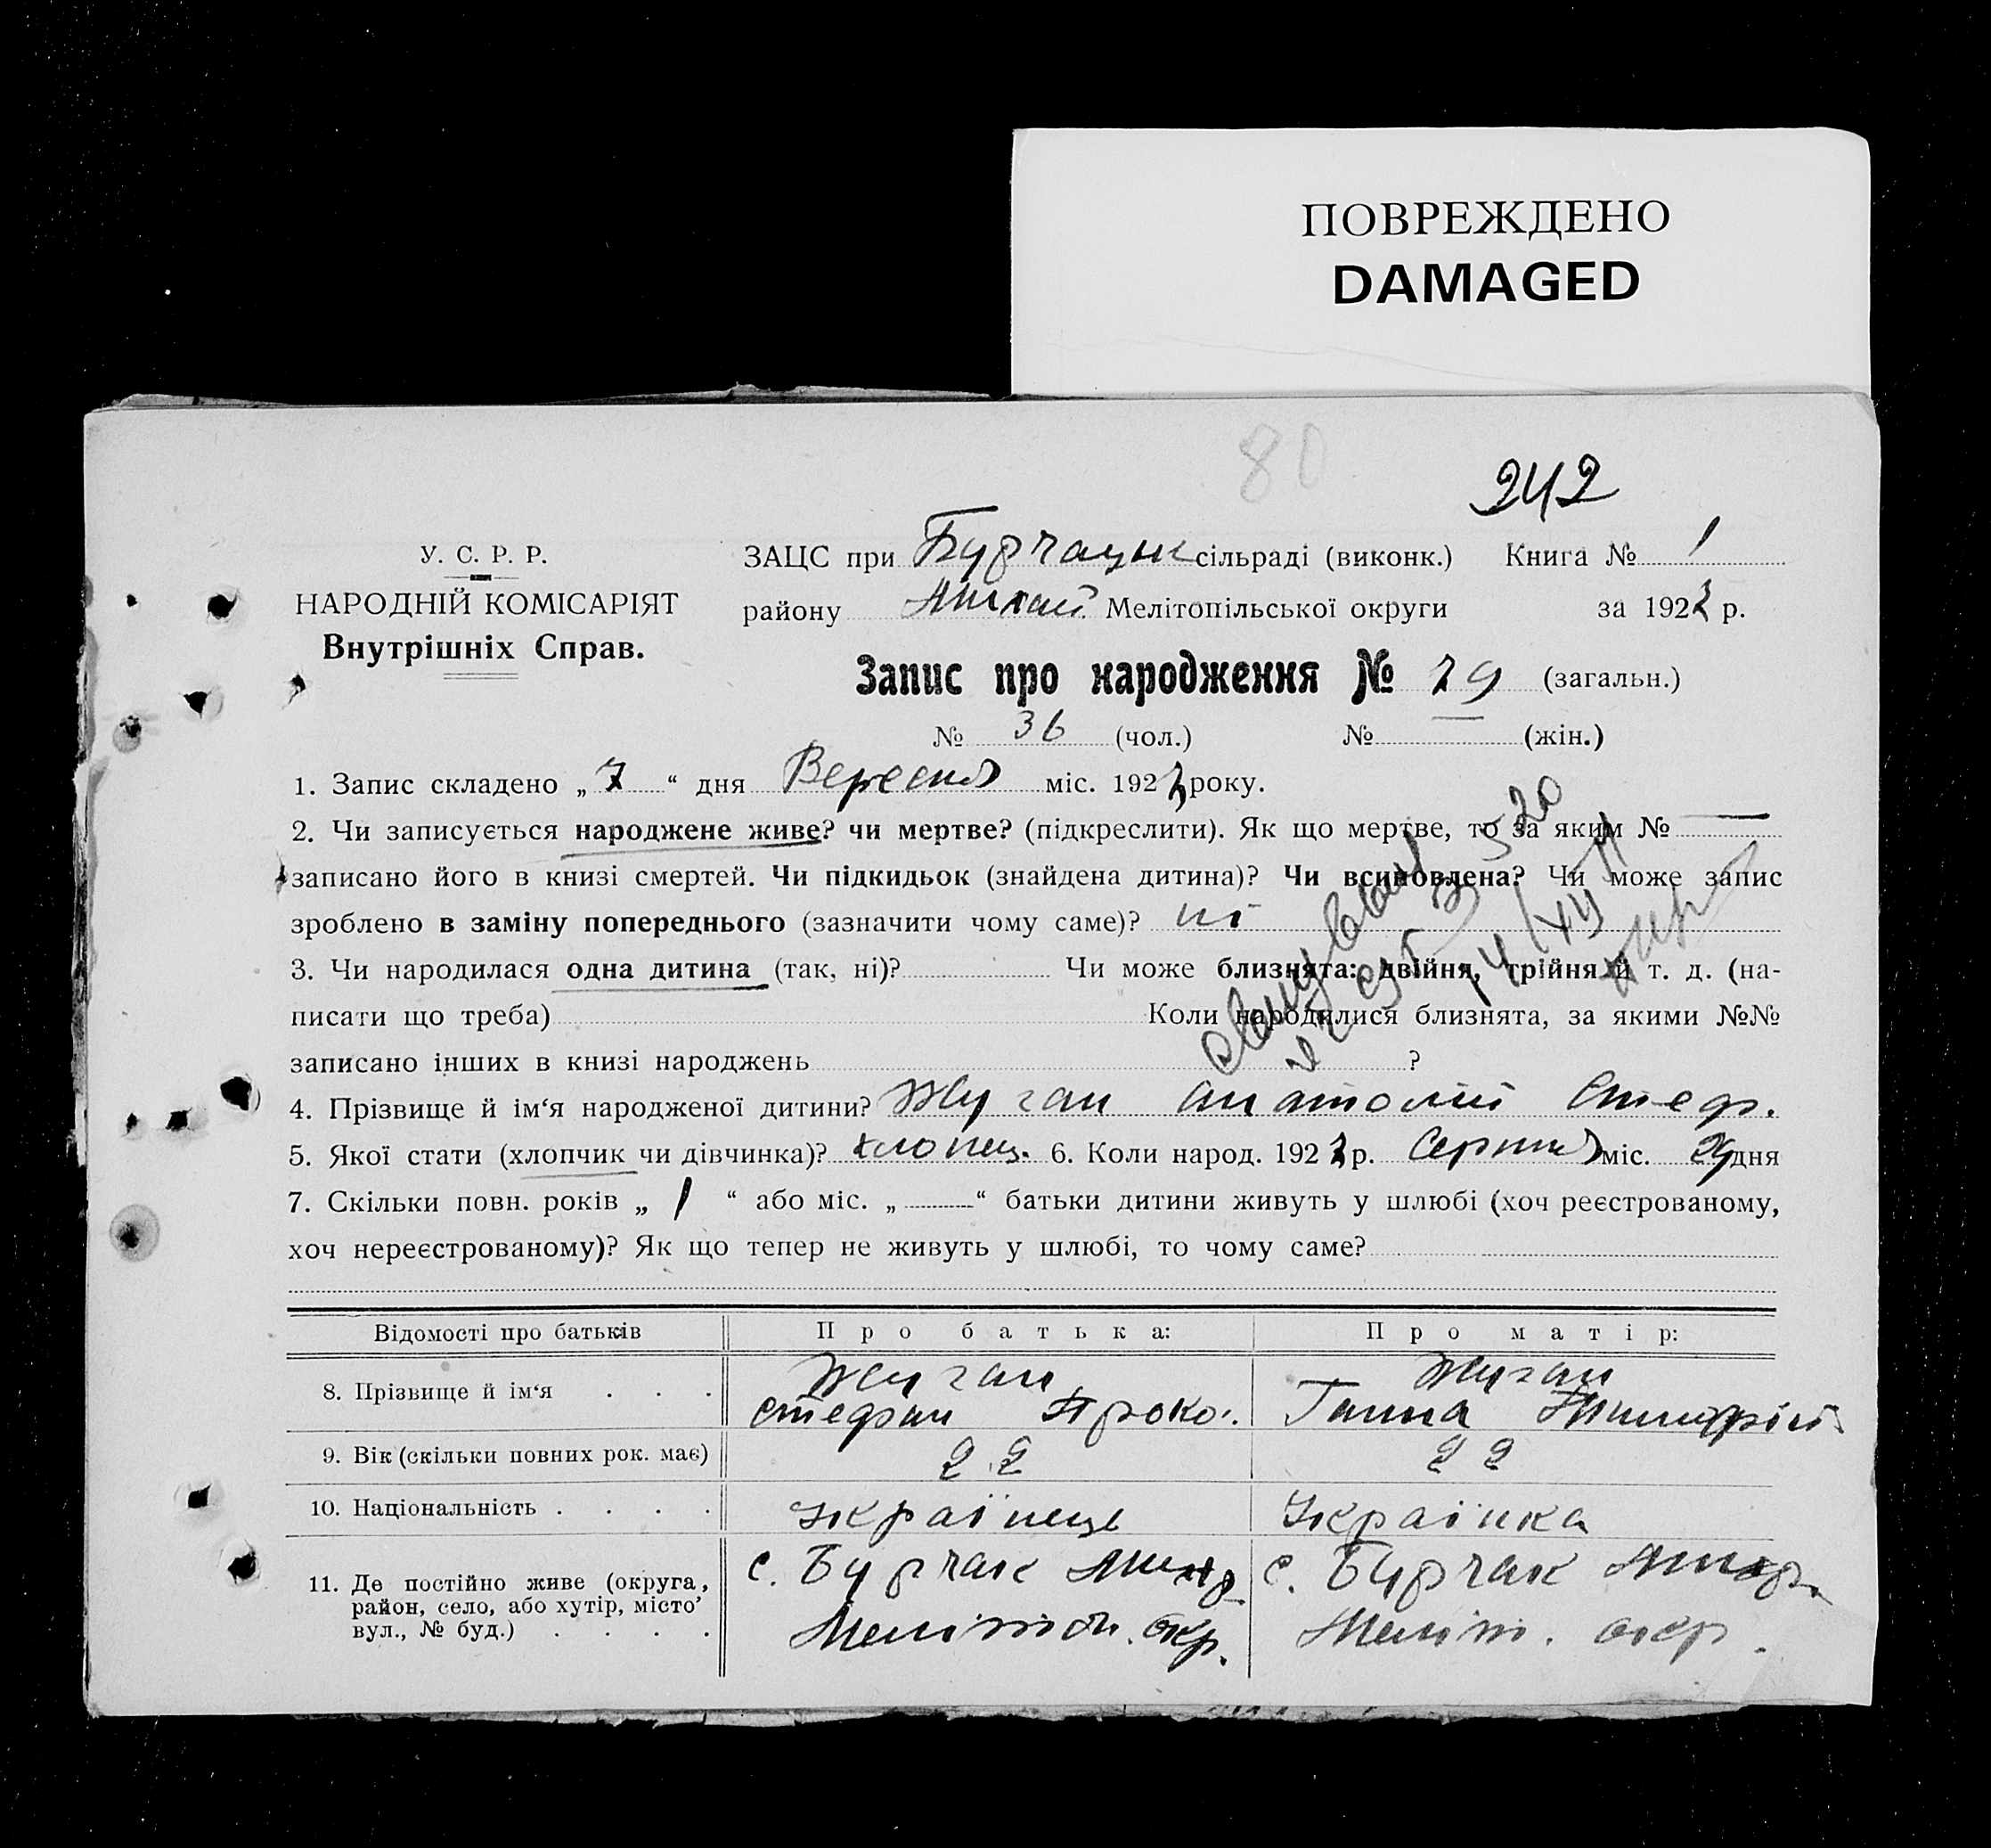 ПОВРЕЖДЕНО
DAMAGED
80
242
У. С. Р. Р.
НАРОДНІЙ КОМІСАРІЯТ
Внутрішніх Справ.
ЗАЦС при Бурчацьк сільраді (виконк.) Книга № 1
району Мелітопільської округи за 192 р.
Запис про народження № 79 (загальн.)
№ 36 (чол.) № — (жін.)
1. Запис складено „ 7 “ дня Вересня міс. 192 року.
2. Чи записується народжене живе? чи мертве? (підкреслити). Як що мертве, то за яким № —
записано його в книзі смертей. Чи підкидьок (знайдена дитина)? Чи всиновлена? Чи може запис
зроблено в заміну попереднього (зазначити чому саме)? ні
3. Чи народилася одна дитина (так, ні)? Чи може близнята: двійня, трійня й т. д. (на-
писати що треба) Коли народилися близнята, за якими №№
записано інших в книзі народжень ?
4. Прізвище й ім‘я народженої дитини? Жуган Анатолій Стеф.
5. Якої стати (хлопчик чи дівчинка)? хлопец. 6. Коли народ. 192 р. Серпня міс. 29 дня
7. Скільки повн. років „ 1 “ або міс. „ — “ батьки дитини живуть у шлюбі (хоч реєстрованому,
хоч нереєстрованому)? Як що тепер не живуть у шлюбі, то чому саме?
Відомості про батьків Про батька: Про матір:
8. Прізвище й ім‘я . . . Жуган Жуган
Стефан Проко. Ганна
9. Вік (скільки повних рок. має) 22 22
10. Національність . . . . Українець Українка
11. Де постійно живе (округа, район, село, або хутір, місто, вул., № буд.) . . . . с. Бурчак с. Бурчак
Мелітоп. окр. Меліт. окр.